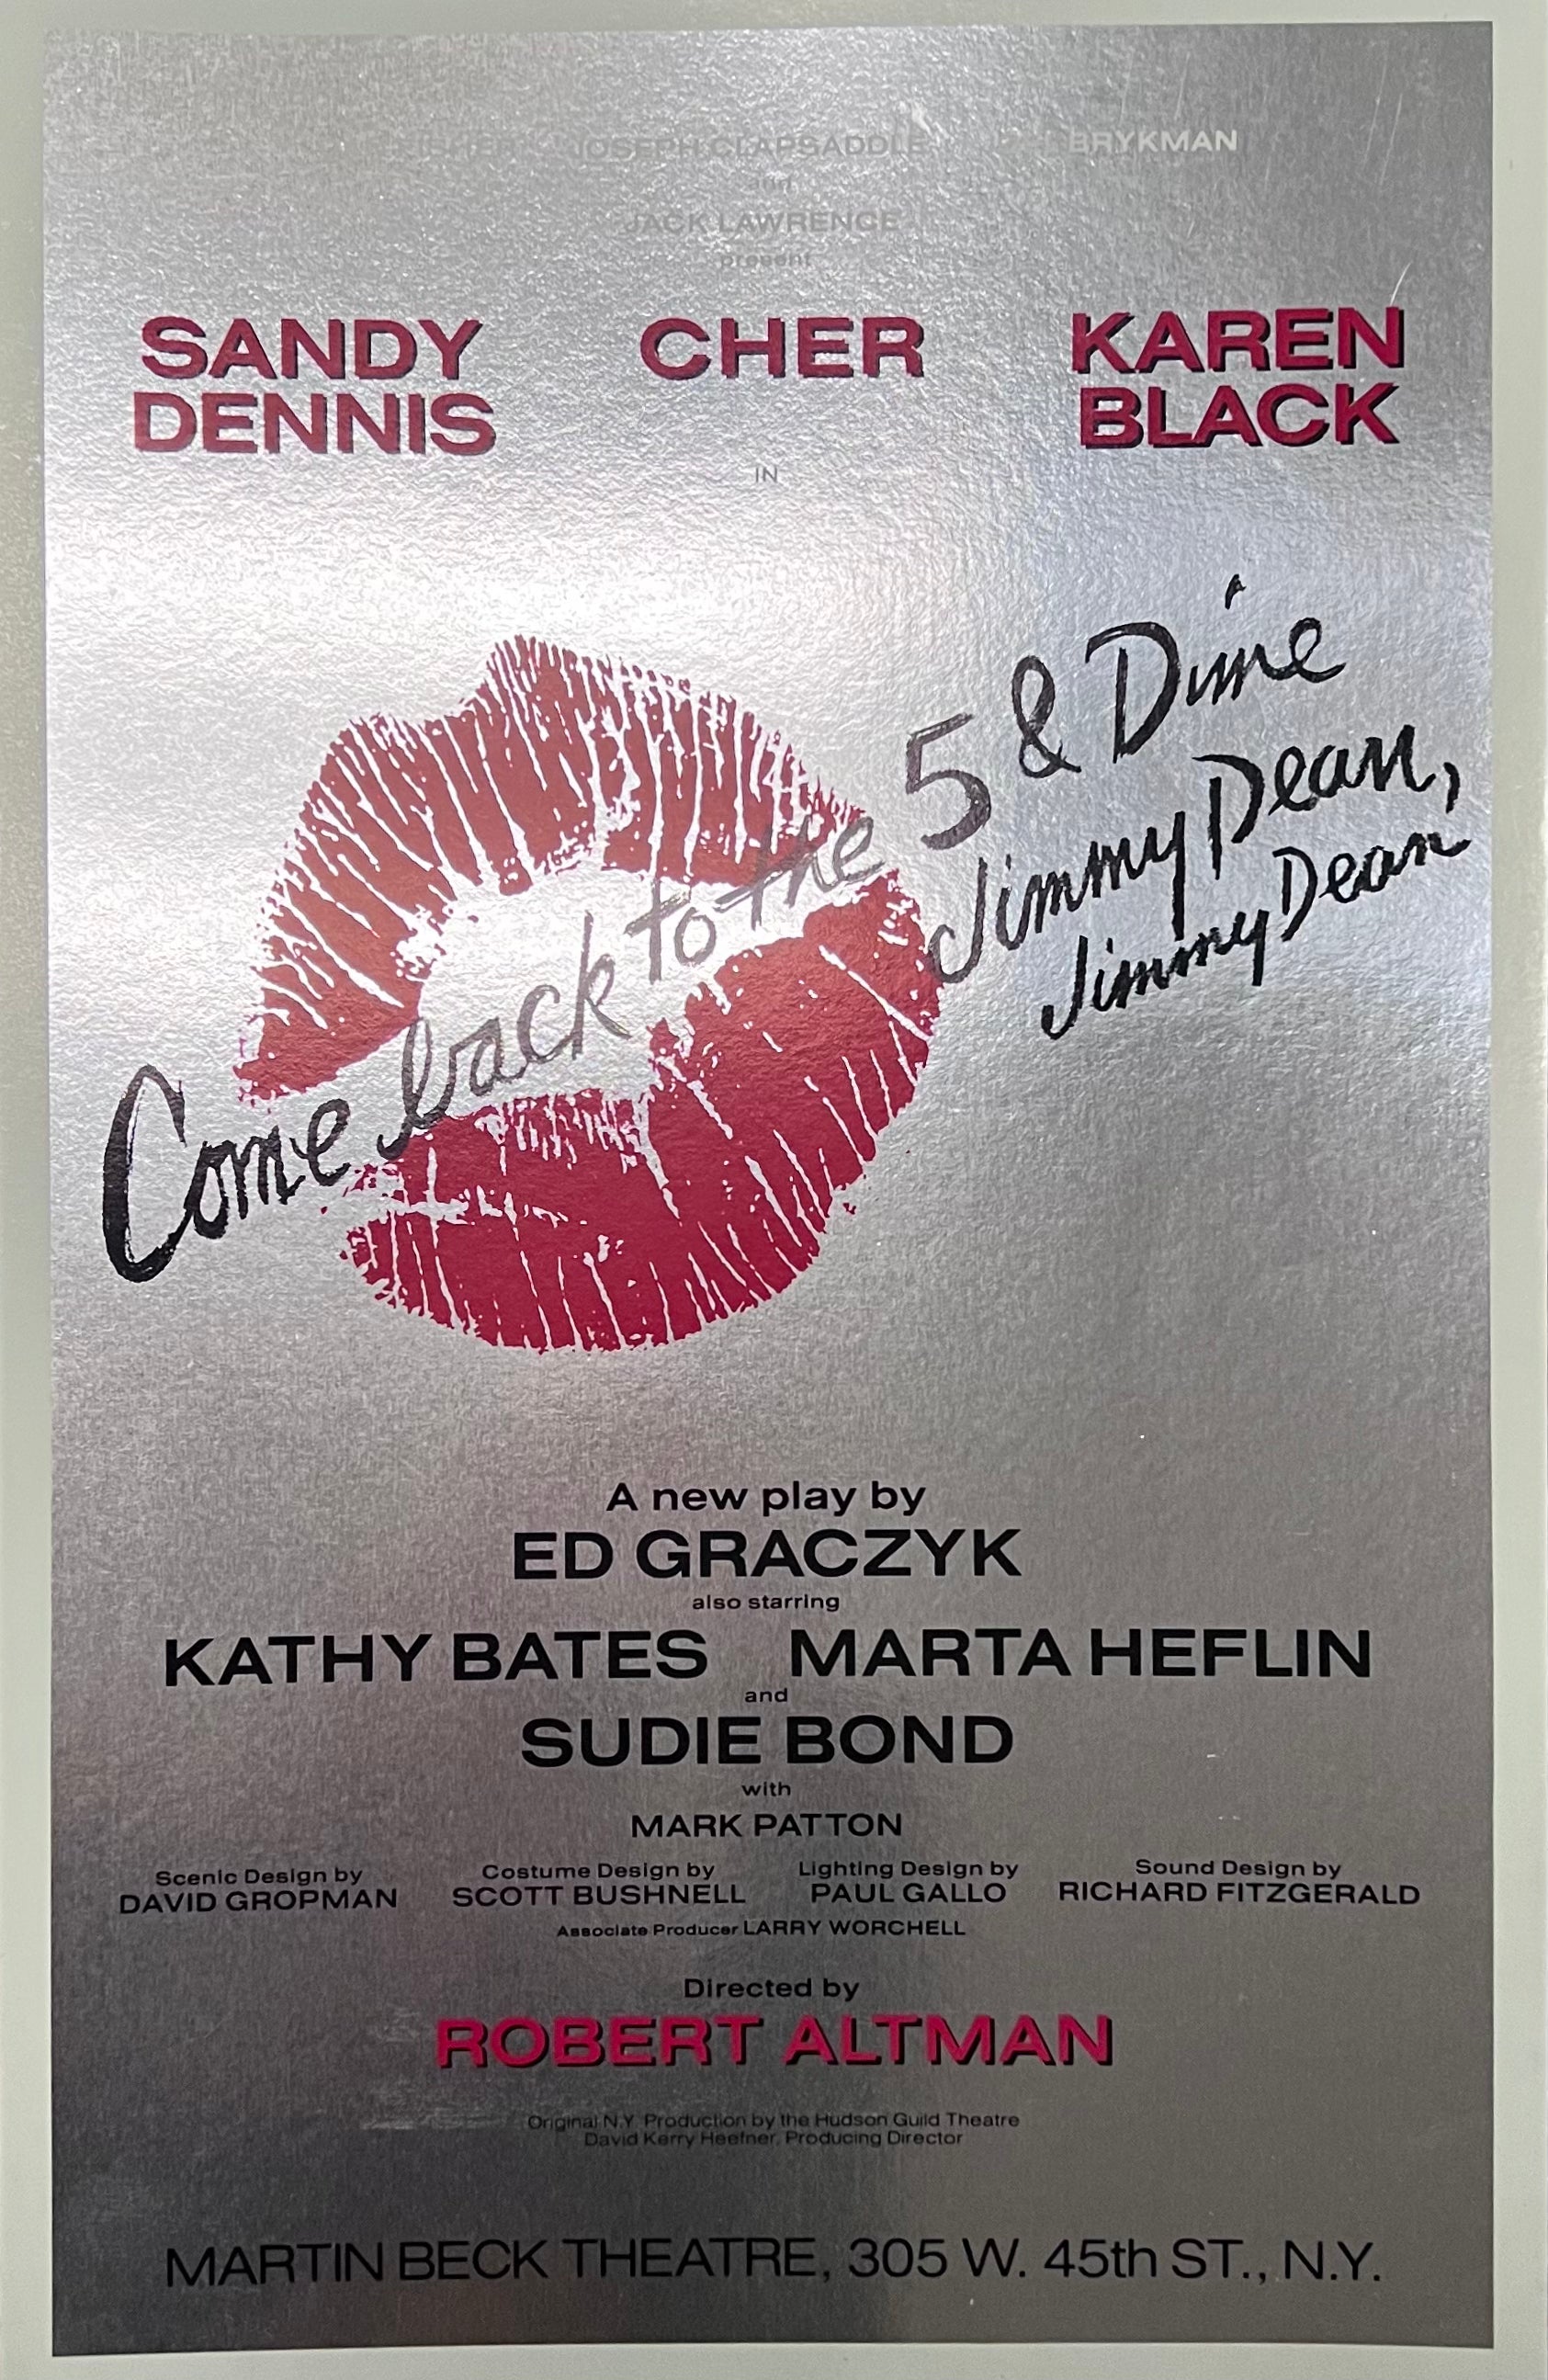 JOSEPH CLAPSADDLE BRYKMAN
and
JACK LAWRENCE
present
SANDY DENNIS
CHER
KAREN BLACK
IN
Come back to the 5 & Dime
Jimmy Dean,
Jimmy Dean
A new play by
ED GRACZYK
also starring
KATHY BATES MARTA HEFLIN
and
SUDIE BOND
with
MARK PATTON
Scenic Design by
DAVID GROPMAN
Costume Design by
SCOTT BUSHNELL
Lighting Design by
PAUL GALLO
Sound Design by
RICHARD FITZGERALD
Associate Producer LARRY WORCHELL
Directed by
ROBERT ALTMAN
Original N.Y. Production by the Hudson Guild Theatre
David Kerry Heefner, Producing Director
MARTIN BECK THEATRE, 305 W. 45th ST., N.Y.